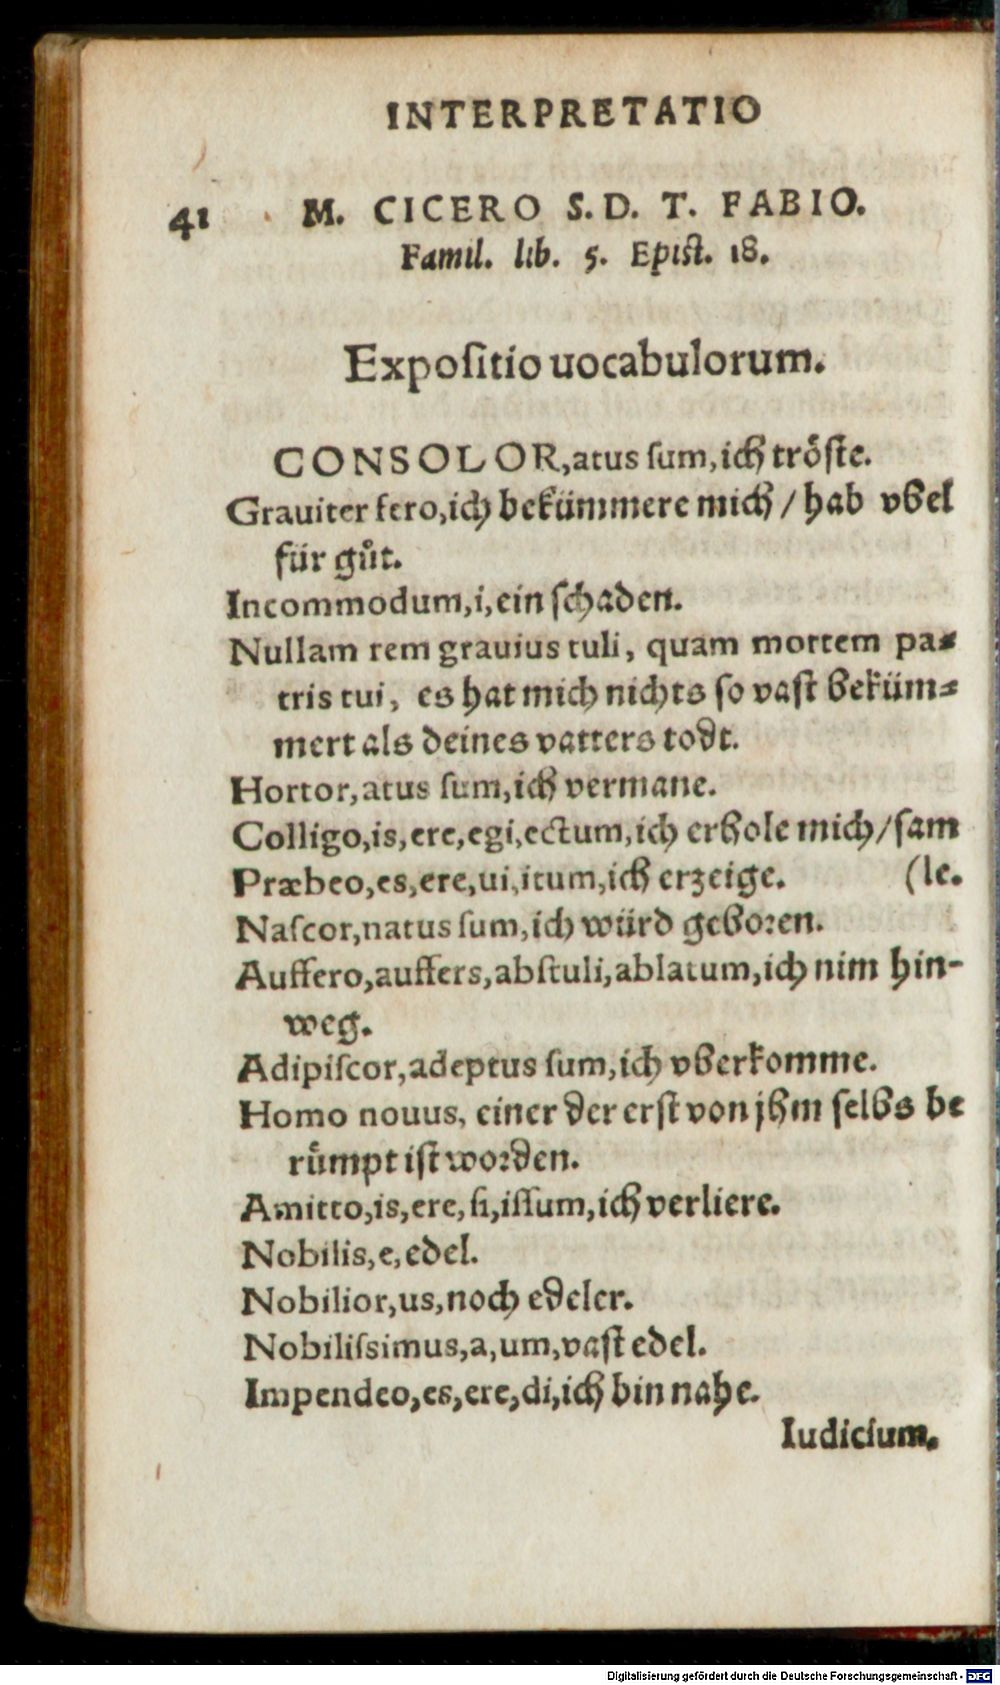 INTERPRETATIO
41 M. CICERO S. D. T. FABIO.
Famil. lib. 5. Epist. 18.
Expoſitio uocabulorum.
CONSOLOR, atus ſum, ich tröſte.
Grauiter fero, ich bekümmere mich / hab vbel
für gůt.
Incommodum, i, ein ſchaden.
Nullam rem grauius tuli, quam mortem pa⸗
tris tui, es hat mich nichts so vaſt beküm⸗
mert als deines vatters todt.
Hortor, atus ſum, ich vermane.
Colligo, is, ere, egi, ectum, ich erhole mich / ſam
Præbeo, es, ere, ui, itum, ich erzeige. (le.
Naſcor, natus ſum, ich würd geboꝛen.
Auffero, auffers, abſtuli, ablatum, ich nim hin-
weg.
Adipiſcor, adeptus ſum, ich vberkomme.
Homo nouus, einer der erſt von jhm ſelbs be
rům̃pt iſt woꝛden.
Amitto, is, ere, ſi, iſſum, ich verliere.
Nobilis, e, edel.
Nobilior, us, noch edeler.
Nobiliſsimus, a, um, vaſt edel.
Impendeo, es, ere, di, ich bin nahe.
Iudicium.
Digitalisierung gefördert durch die Deutsche Forschungsgemeinschaft - DFG